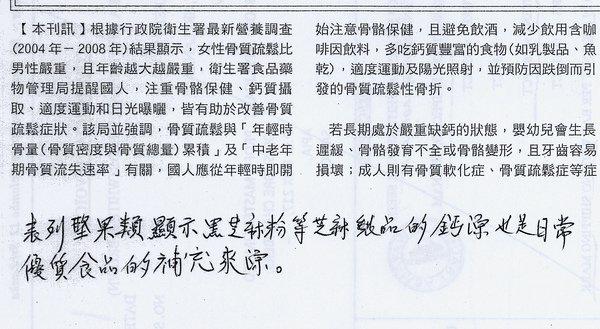 【本刊訊】根據行政院衛生署最新營養調查
(2004 年－2008 年)結果顯示，女性骨質疏鬆比
男性嚴重，且年齡越大越嚴重，衛生署食品藥
物管理局提醒國人，注重骨骼保健、鈣質攝
取、適度運動和日光曝曬，皆有助於改善骨質
疏鬆症狀。該局並強調，骨質疏鬆與「年輕時
骨量（骨質密度與骨質總量）累積」及「中老年
期骨質流失速率」有關，國人應從年輕時即開
始注意骨骼保健，且避免飲酒，減少飲用含咖
啡因飲料，多吃鈣質豐富的食物(如乳製品、魚
乾)，適度運動及陽光照射，並預防因跌倒而引
發的骨質疏鬆性骨折。
若長期處於嚴重缺鈣的狀態，嬰幼兒會生長
遲緩、骨骼發育不全或骨骼變形，且牙齒容易
損壞；成人則有骨質軟化症、骨質疏鬆症等症
表列堅果類顯示黑芝麻粉等芝麻製品的鈣源也是日常
優質食品的補充來源。